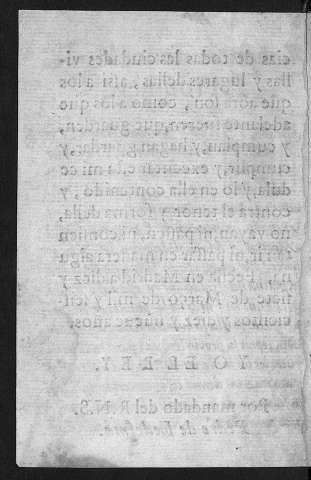 cias de todas las ciudades vi-
llas y lugares dellas, assi a los
que aora son, como a los que
adelante fueren, que guarden,
y cumplan, y hagan guardar, y
cumplir, y executar esta mi ce
dula, y lo en ella contenido, y
contra el tenor y forma della,
no vayan, ni passen, ni consien
tan ir, ni passar en manera algu
na. Fecha en Madrid a diez y
siete de Março de mil y seis-
cientos y diez y nueue años.
YO EL REY.
Por mandado del R. N. S.
Pedro de Ledesma.